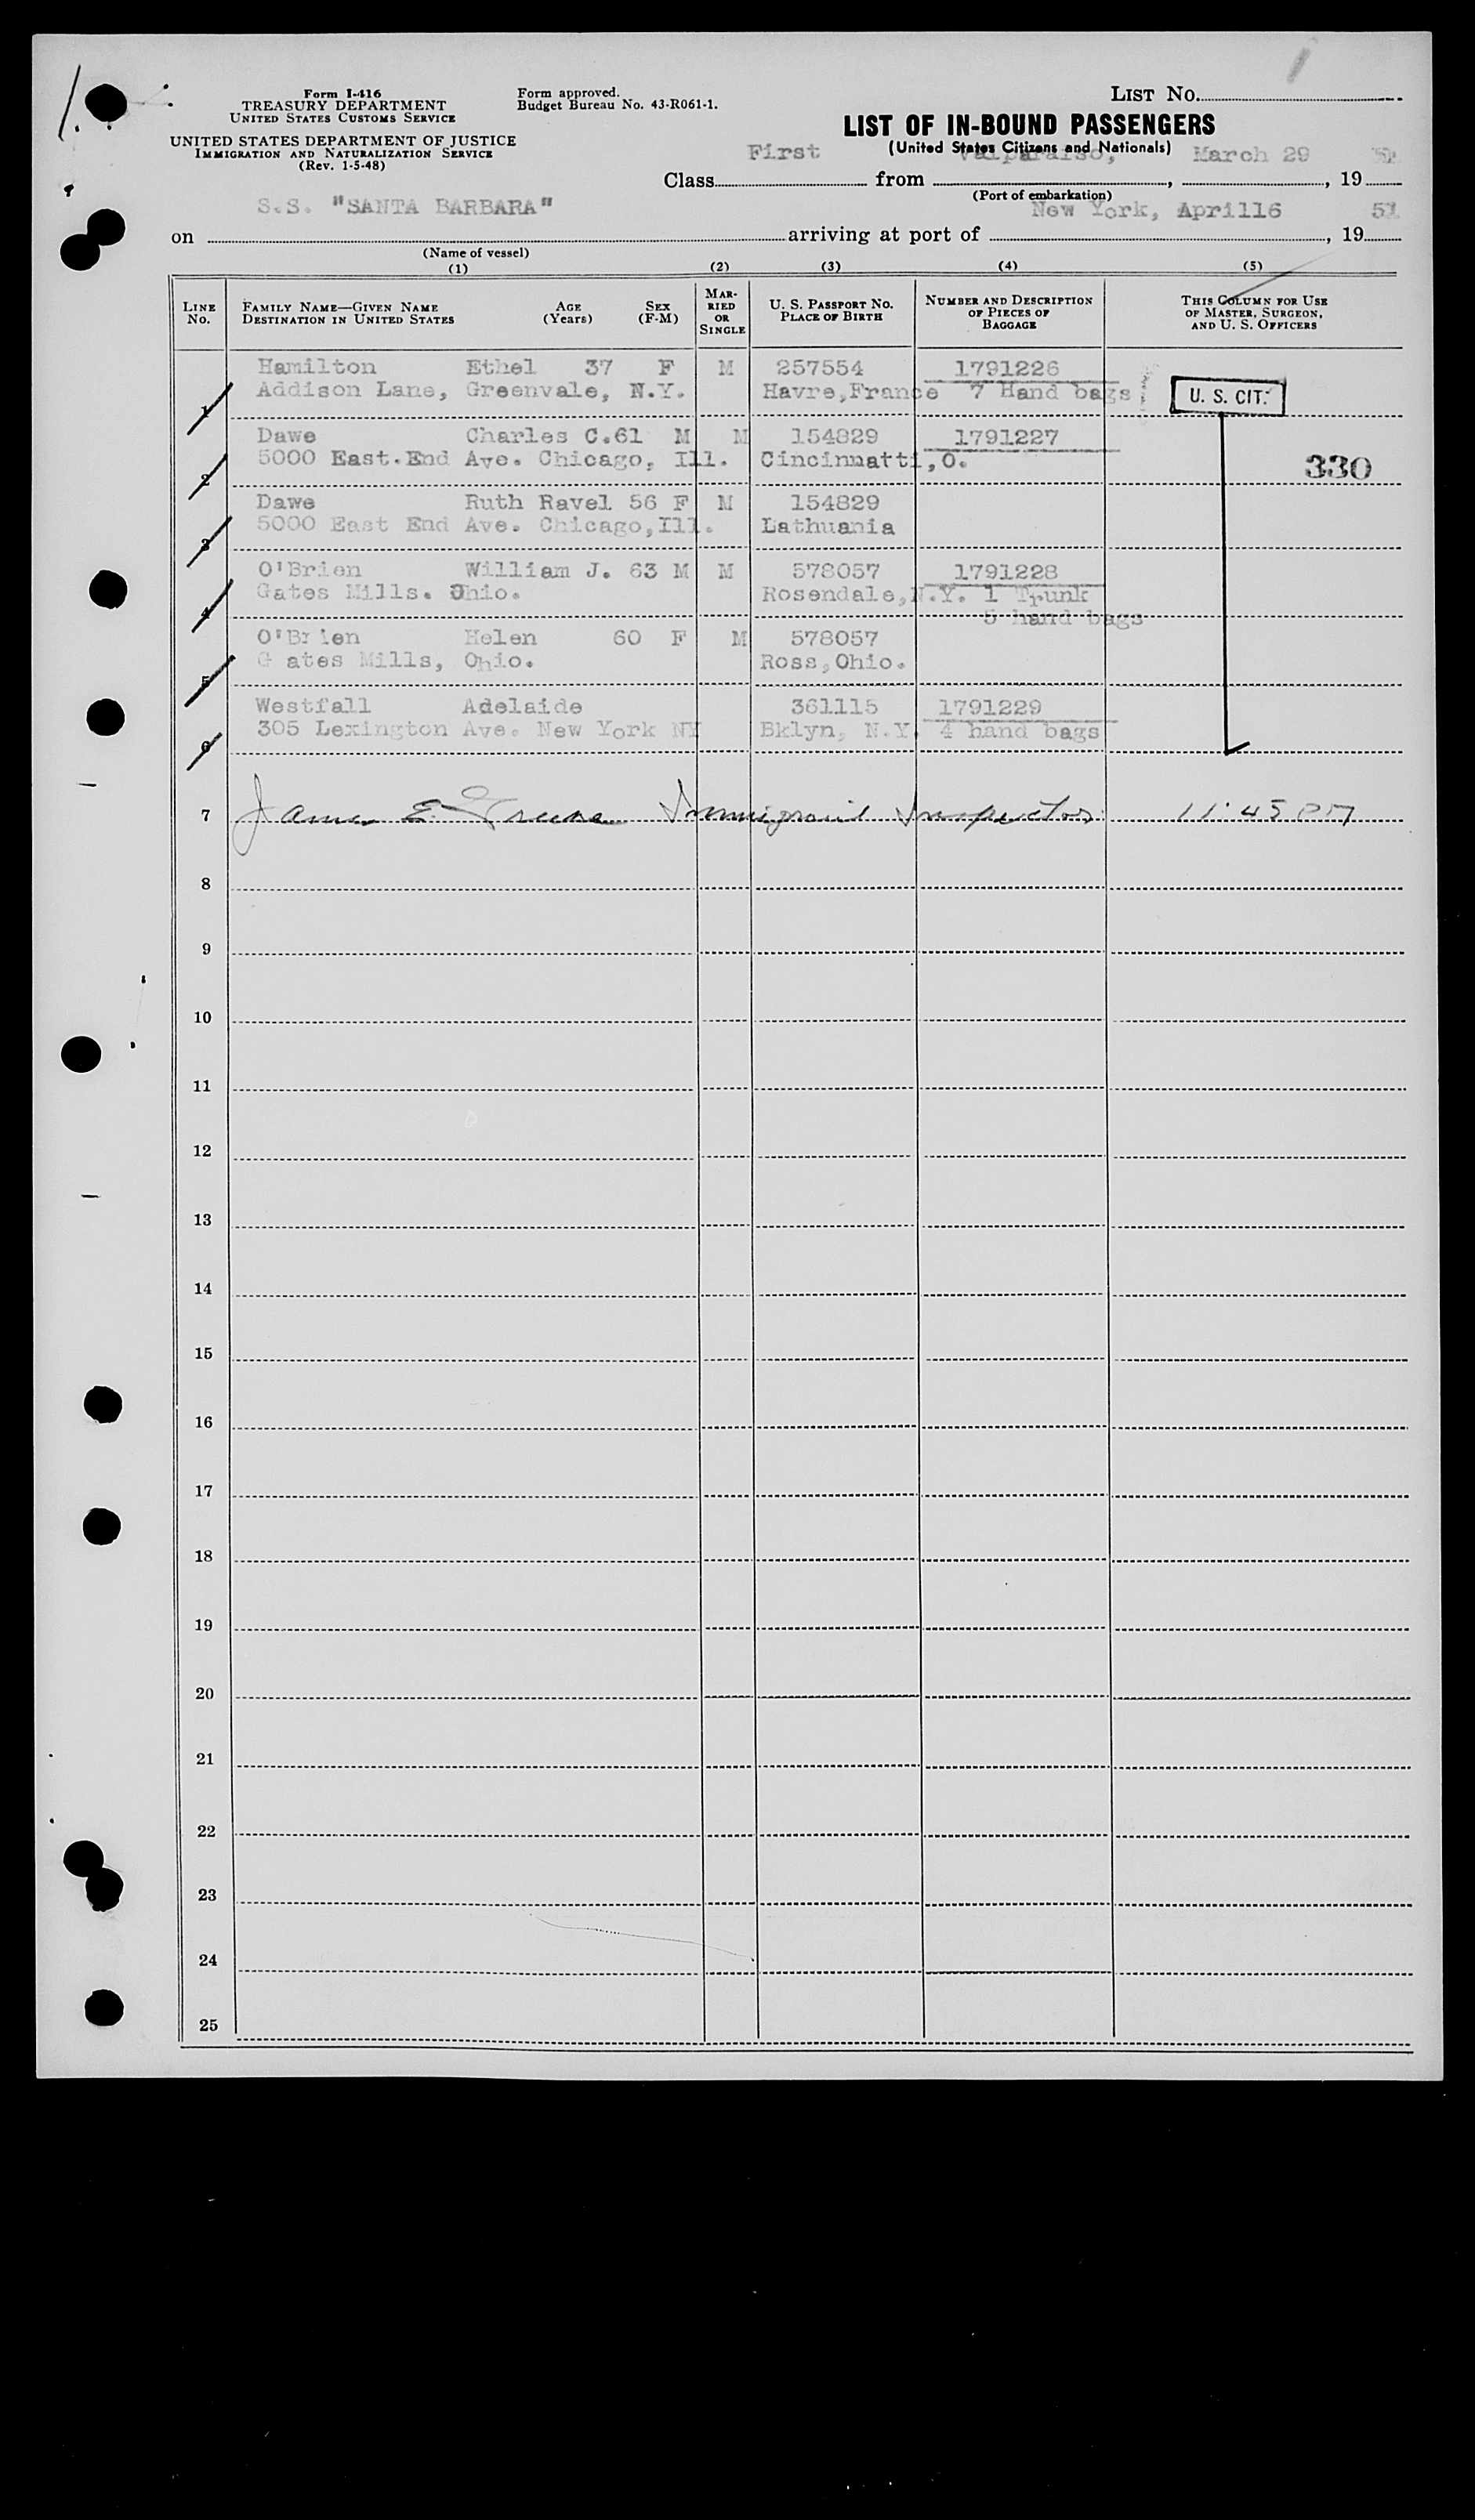 Form I-416
TREASURY DEPARTMENT
UNITED STATES CUSTOMS SERVICE
UNITED STATES DEPARTMENT OF JUSTICE
IMMIGRATION AND NATURALIZATION SERVICE
(Rev. 1-5-48)
Form approved.
Budget Bureau No. 43-R061-1.
LIST NO.
LIST OF IN-BOUND PASSENGERS
(United States Citizens and Nationals)
Class First from Valparaiso, March 29, 19 51
(Port of embarkation)
on S.S. "SANTA BARBARA" arriving at port of New York, April16, 19 51
(Name of vessel)
(1) (2) (3) (4) (5)
LINE NO. FAMILY NAME—GIVEN NAME DESTINATION IN UNITED STATES AGE (Years) SEX (F-M) MARRIED OR SINGLE U. S. PASSPORT NO. PLACE OF BIRTH NUMBER AND DESCRIPTION OF PIECES OF BAGGAGE THIS COLUMN FOR USE OF MASTER, SURGEON, AND U. S. OFFICERS
Hamilton Ethel 37 F M 257554 1791226
1 Addison Lane, Greenvale, N.Y. Havre,France 7 Hand bags U. S. CIT.
Dawe Charles C.61 M M 154829 1791227
2 5000 East.End Ave. Chicago, Ill. Cincinnatti,O. 330
Dawe Ruth Ravel 56 F M 154829
3 5000 East End Ave. Chicago,Ill. Lathuania
O'Brien William J. 63 M M 578057 1791228
4 Gates Mills. Ohio. Rosendale,N.Y. 1 Trunk
5 hand bags
O'Brien Helen 60 F M 578057
5 G ates Mills, Ohio. Ross,Ohio.
Westfall Adelaide 361115 1791229
6 305 Lexington Ave. New York NY Bklyn, N.Y. 4 hand bags
7 James E. Immigrant Inspector 11:45 PM
8
9
10
11
12
13
14
15
16
17
18
19
20
21
22
23
24
25